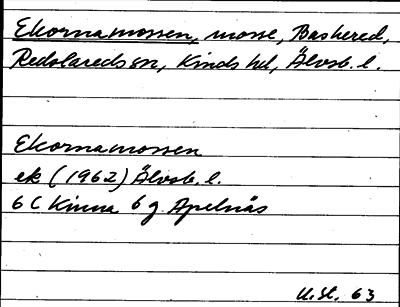 Ekornamossen, mosse, Bashered,
Redslareds sn, Kinds hd, Älvsb. l.
Ekornamossen
ek (1962) Älvsb. l.
6 C Kinna 6 g. Apelnäs
U.St. 63